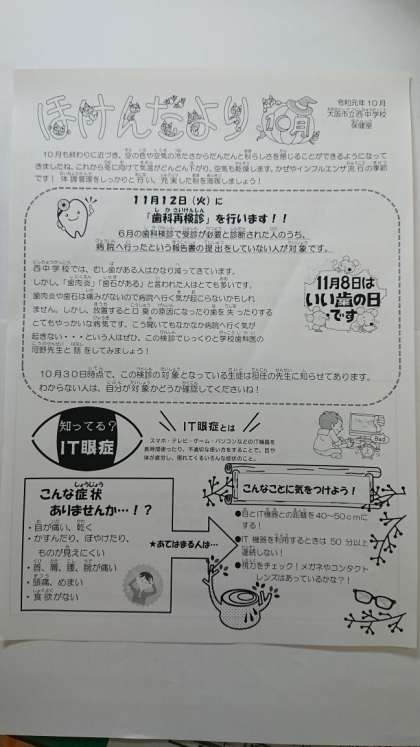 ほけんだより 10月
令和元年10月
大阪市立西中学校
保健室
10月も終わりに近づき、空の色や空気の冷たさからだんだんと秋らしさを感じることができるようになって
きましたね。これから冬に向けて気温がどんどん下がり、空気も乾燥します。かぜやインフルエンザ流行の季節
です! 体調管理をしっかりと行い、充実した秋を満喫しましょう!
11月12日(火)に
「歯科再検診」を行います!!
6月の歯科検診で受診が必要と診断された人のうち、
病院へ行ったという報告書の提出をしていない人が対象です。
西中学校では、むし歯がある人はかなり減ってきています。
しかし、「歯肉炎」「歯石がある」と言われた人はとても多いです。
歯肉炎や歯石は痛みがないので病院へ行く気が起こらないかもしれ
ません。しかし、放置すると口臭の原因になったり歯を失ったりする
とてもやっかいな病気です。こう聞いてもなかなか病院へ行く気が
起きない・・・という人はぜひ、この検診でじっくりと学校歯科医の
河野先生と話をしてみましょう!
11月8日は
いい歯の日
です
10月30日時点で、この検診の対象となっている生徒は担任の先生に知らせてあります。
わからない人は、自分が対象かどうか確認してくださいね!
知ってる?
IT眼症
IT眼症とは
スマホ・テレビ・ゲーム・パソコンなどのIT機器を
長時間使ったり、不適切な使い方をすることで、目や
体が疲労し、現れてくるいろんな症状のこと。
Bad
こんな症状
ありませんか…!?
・目が痛い、乾く
・かすんだり、ぼやけたり、
ものが見えにくい
・首、肩、腰、腕が痛い
・頭痛、めまい
・食欲がない
★あてはまる人は…
こんなことに気をつけよう!
●目とIT機器との距離を40~50cmに
する!
●IT機器を利用するときは50分以上
連続しない!
●視力をチェック!メガネやコンタクト
レンズはあっているかな?!